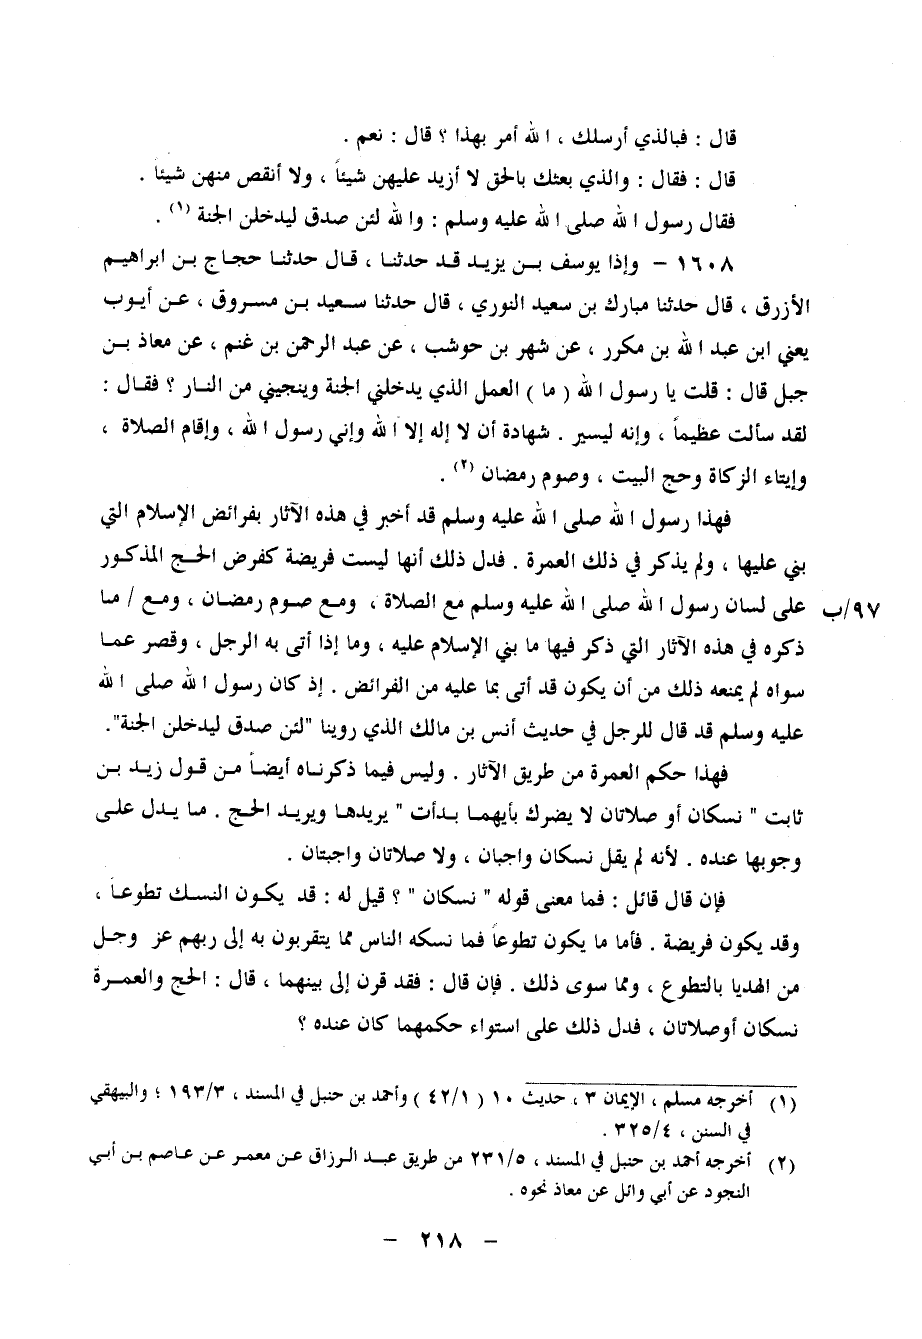 قال : فبالذي أرسلك ، الله أمر بهذا ؟ قال : نعم .
قال : فقال : والذي بعثك بالحق لا أزيد عليهن شيئاً ، ولا أنقص منهن شيئاً .
فقال رسول الله صلى الله عليه وسلم : والله لئن صدق ليدخلن الجنة (١) .
١٦٠٨ – وإذا يوسف بن يزيد قد حدثنا ، قال حدثنا حجاج بن ابراهيم
الأزرق ، قال حدثنا مبارك بن سعيد النوري ، قال حدثنا سعيد بن مسروق ، عن أيوب
يعني ابن عبد الله بن مكرر ، عن شهر بن حوشب ، عن عبد الرحمن بن غنم ، عن معاذ بن
جبل قال : قلت يا رسول الله ( ما ) العمل الذي يدخلني الجنة وينجيني من النار ؟ فقال :
لقد سألت عظيماً ، وإنه ليسير . شهادة أن لا إله إلا الله وإني رسول الله ، وإقام الصلاة ،
وإيتاء الزكاة وحج البيت ، وصوم رمضان (٢) .
فهذا رسول الله صلى الله عليه وسلم قد أخبر في هذه الآثار بفرائض الإسلام التي
بني عليها ، ولم يذكر في ذلك العمرة . فدل ذلك أنها ليست فريضة كفرض الحج المذكور
على لسان رسول الله صلى الله عليه وسلم مع الصلاة ، ومع صوم رمضان ، ومع / ما ٩٧/ب
ذكره في هذه الآثار التي ذكر فيها ما بني الإسلام عليه ، وما إذا أتى به الرجل ، وقصر عما
سواه لم يمنعه ذلك من أن يكون قد أتى بما عليه من الفرائض . إذ كان رسول الله صلى الله
عليه وسلم قد قال للرجل في حديث أنس بن مالك الذي روينا "لئن صدق ليدخلن الجنة".
فهذا حكم العمرة من طريق الآثار . وليس فيما ذكرناه أيضاً من قول زيد بن
ثابت " نسكان أو صلاتان لا يضرك بأيهما بدأت " يريدها ويريد الحج . ما يدل على
وجوبها عنده . لأنه لم يقل نسكان واجبان ، ولا صلاتان واجبتان .
فإن قال قائل : فما معنى قوله " نسكان " ؟ قيل له : قد يكون النسك تطوعاً ،
وقد يكون فريضة . فأما ما يكون تطوعاً فما نسكه الناس مما يتقربون به إلى ربهم عز وجل
من الهديا بالتطوع ، ومما سوى ذلك . فإن قال : فقد قرن إلى بينهما ، قال : الحج والعمرة
نسكان أوصلاتان ، فدل ذلك على استواء حكمهما كان عنده ؟
(١) أخرجه مسلم ، الإيمان ٣ ، حديث ١٠ ( ٤٢/١ ) وأحمد بن حنبل في المسند ، ١٩٣/٣ ؛ والبيهقي
في السنن ، ٣٢٥/٤ .
(٢) أخرجه أحمد بن حنبل في المسند ، ٢٣١/٥ من طريق عبد الرزاق عن معمر عن عاصم بن أبي
النجود عن أبي وائل عن معاذ نحوه .
– ٢١٨ –